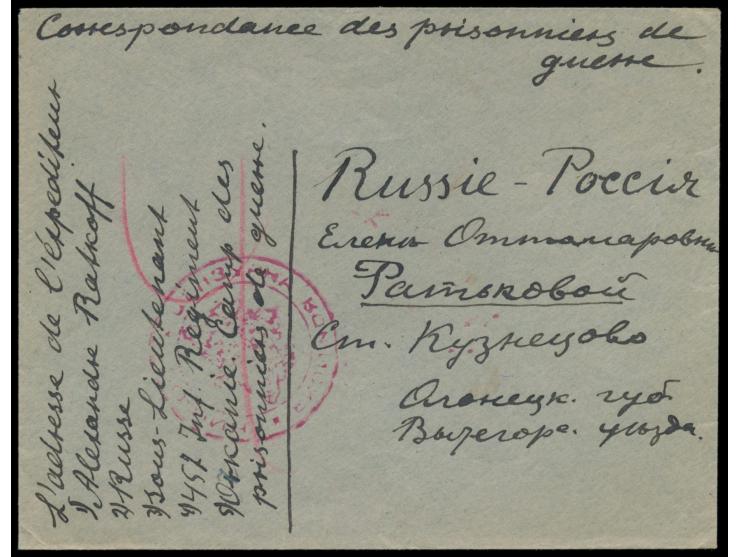 Correspondance des prisonniers de
guerre.
L'adresse de l'expéditeur
1) Alexandre Ratkoff
2) Russe
3) Sous-Lieutenant
4) 452 Inf. Regiment
5) Camp des
prisonniers de guerre.
Russie - Россія
Елене Оттомаровне
Ратьковой
Ст. Кузнецово
Олонецк. губ.
Вытегорс. уѣзда.